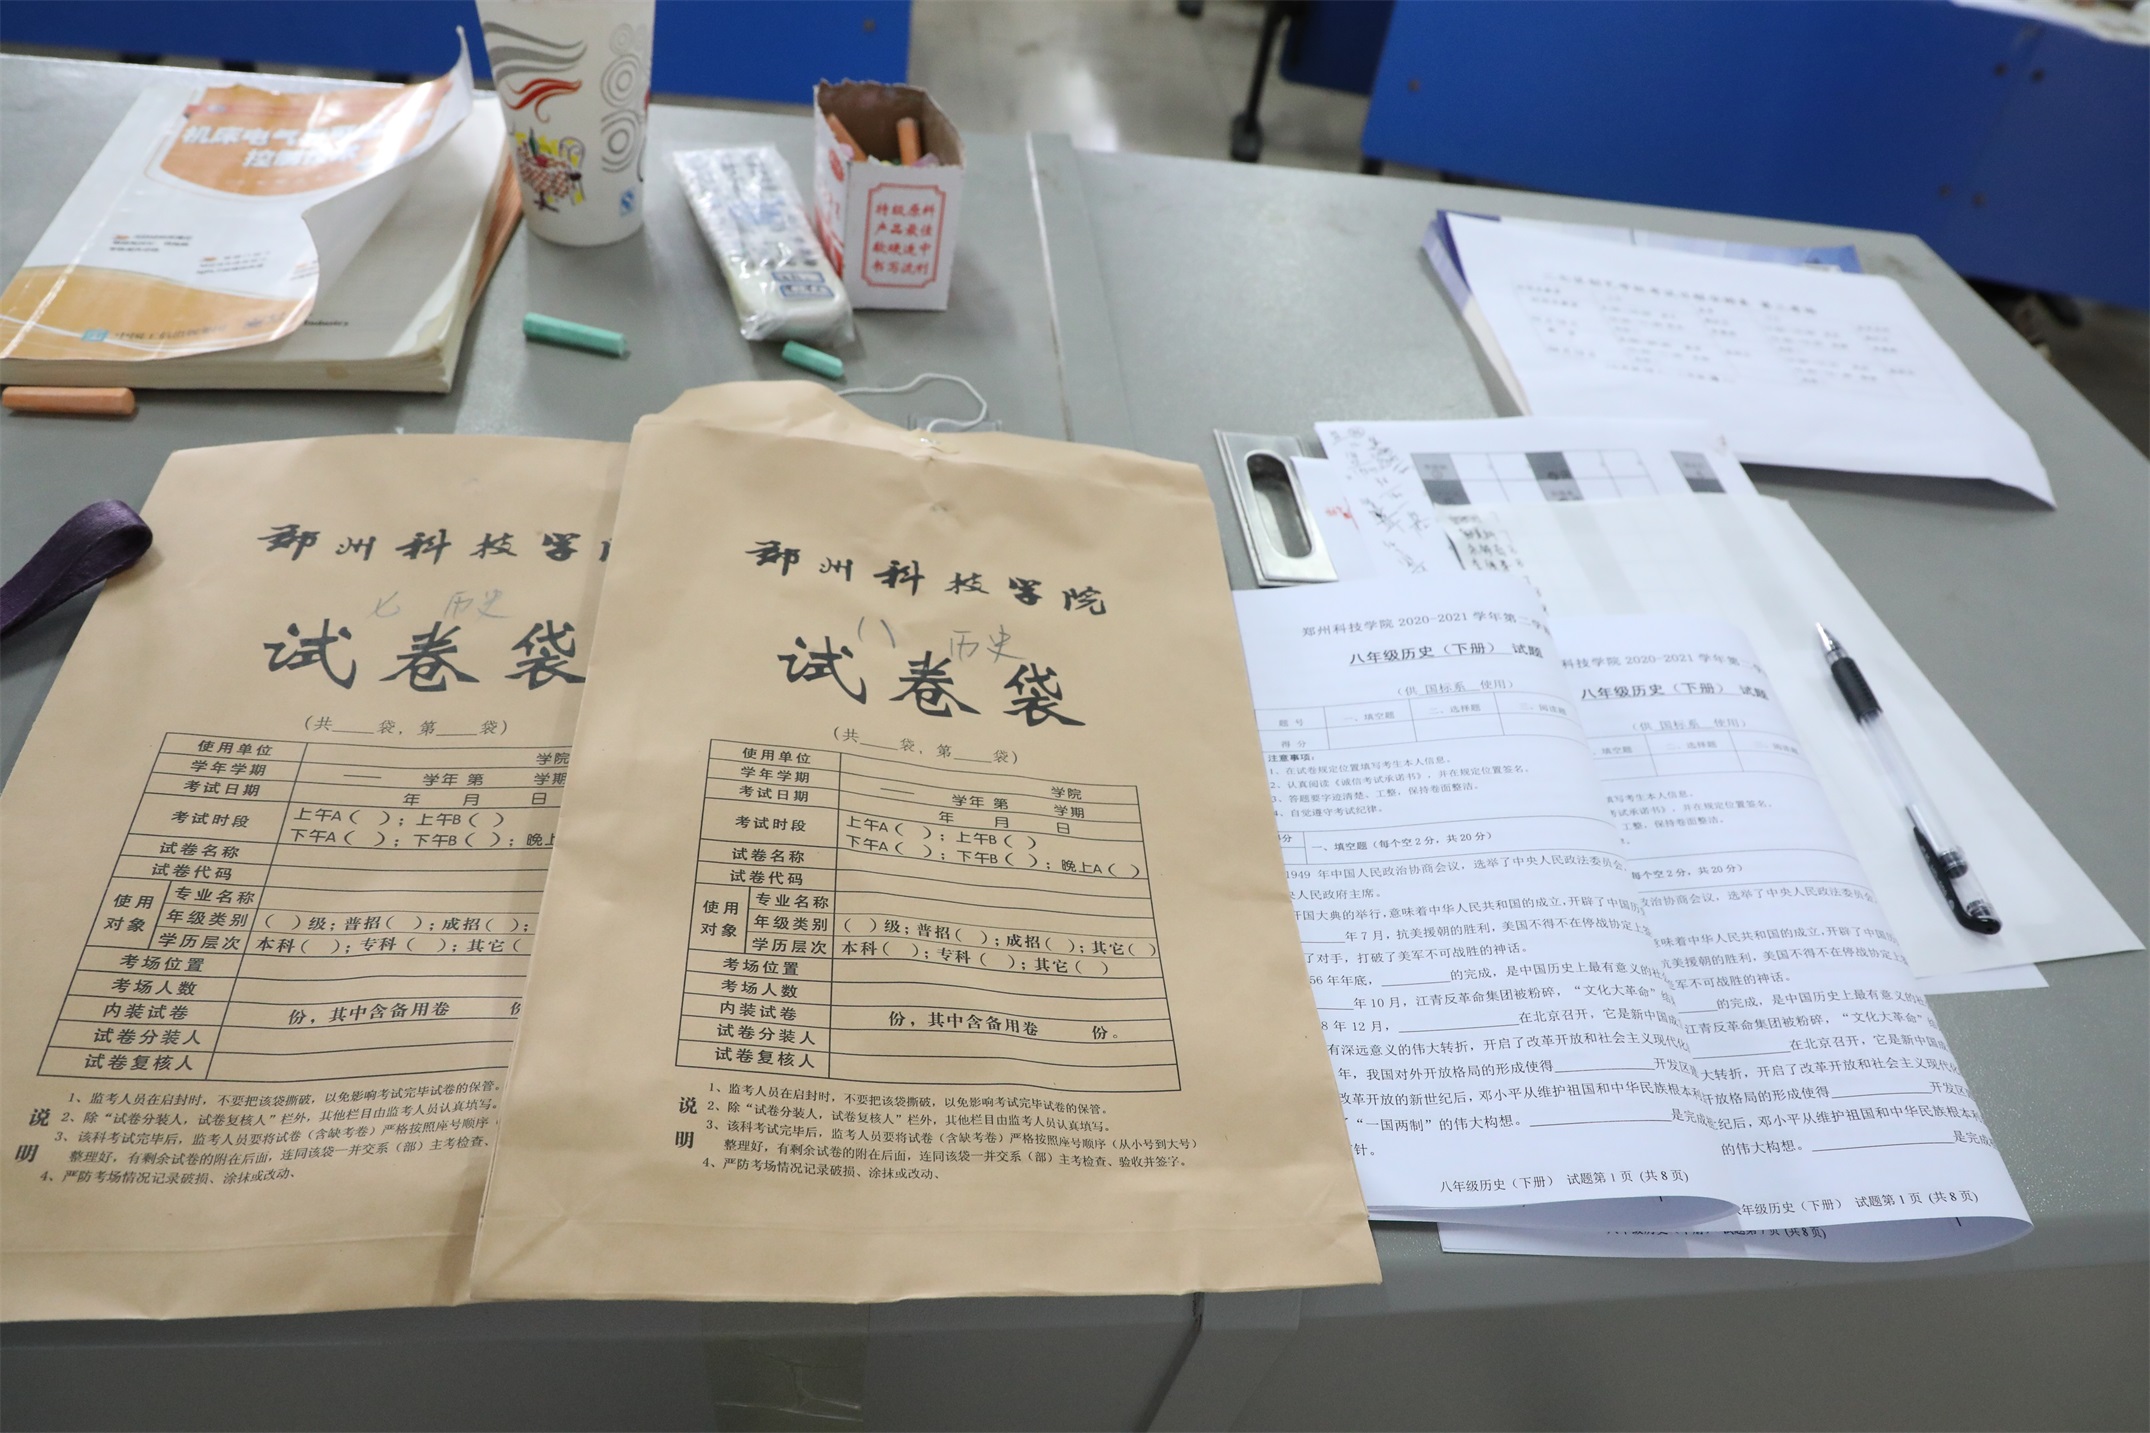 机床电气
控制技术
Industry
特级原料
产品最佳
软硬适中
书写流利
郑州科技学
七 历史
试卷袋
(共____袋，第____袋)
使用单位 学院
学年学期 —— 学年 第 学期
考试日期 年 月 日
考试时段 上午A( )；上午B( )
下午A( )；下午B( )；晚上
试卷名称
试卷代码
使用对象 专业名称
年级类别 ( )级；普招( )；成招( )；
学历层次 本科( )；专科( )；其它(
考场位置
考场人数
内装试卷 份，其中含备用卷 份
试卷分装人
试卷复核人
说明
1、监考人员在启封时，不要把该袋撕破，以免影响考试完毕试卷的保管。
2、除“试卷分装人，试卷复核人”栏外，其他栏目由监考人员认真填写。
3、该科考试完毕后，监考人员要将试卷（含缺考卷）严格按照座号顺序（
整理好，有剩余试卷的附在后面，连同该袋一并交系（部）主考检查、
4、严防考场情况记录破损、涂抹或改动、
郑州科技学院
八 历史
试卷袋
(共____袋，第____袋)
使用单位 学院
学年学期 —— 学年 第 学期
考试日期 年 月 日
考试时段 上午A( )；上午B( )
下午A( )；下午B( )；晚上A( )
试卷名称
试卷代码
使用对象 专业名称
年级类别 ( )级；普招( )；成招( )；其它( )
学历层次 本科( )；专科( )；其它( )
考场位置
考场人数
内装试卷 份，其中含备用卷 份。
试卷分装人
试卷复核人
说明
1、监考人员在启封时，不要把该袋撕破，以免影响考试完毕试卷的保管。
2、除“试卷分装人，试卷复核人”栏外，其他栏目由监考人员认真填写。
3、该科考试完毕后，监考人员要将试卷（含缺考卷）严格按照座号顺序（从小号到大号）
整理好，有剩余试卷的附在后面，连同该袋一并交系（部）主考检查、验收并签字。
4、严防考场情况记录破损、涂抹或改动、
郑州科技学院 2020-2021 学年第二学
八年级历史（下册） 试题
（供 国标系 使用）
题 号 一、填空题 二、选择题 三、阅读题
得 分
注意事项：
1、在试卷规定位置填写考生本人信息。
2、认真阅读《诚信考试承诺书》，并在规定位置签名。
3、答题要字迹清楚、工整，保持卷面整洁。
4、自觉遵守考试纪律。
一、填空题（每个空2分，共20分）
1949 年中国人民政治协商会议，选举了中央人民政法委员会，
央人民政府主席。
开国大典的举行，意味着中华人民共和国的成立，开辟了中国历
____年7月，抗美援朝的胜利，美国不得不在停战协定上
了对手，打破了美军不可战胜的神话。
56 年年底，________的完成，是中国历史上最有意义的社
____年10月，江青反革命集团被粉碎，“文化大革命”
8 年 12 月，____________在北京召开，它是新中国成
有深远意义的伟大转折，开启了改革开放和社会主义现代化
年，我国对外开放格局的形成使得__________开发区
改革开放的新世纪后，邓小平从维护祖国和中华民族根本利
“一国两制”的伟大构想。______________是完成
针。
八年级历史（下册） 试题第1页（共8页）
科技学院 2020-2021 学年第二学
八年级历史（下册） 试题
（供 国标系 使用）
填空题 二、选择题 三、阅读题
填写考生本人信息。
考试承诺书》，并在规定位置签名。
工整，保持卷面整洁。
每个空2分，共20分）
政治协商会议，选举了中央人民政法委员会，
意味着中华人民共和国的成立，开辟了中国
抗美援朝的胜利，美国不得不在停战协定上
美军不可战胜的神话。
____的完成，是中国历史上最有意义的
江青反革命集团被粉碎，“文化大革命”
__________在北京召开，它是新中国
大转折，开启了改革开放和社会主义现代化
开放格局的形成使得__________开发区
世纪后，邓小平从维护祖国和中华民族根本利
的伟大构想。______________是完成
年级历史（下册） 试题第1页（共8页）